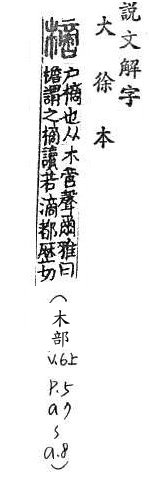 說文解字
大徐本
樀
戶樀也从木啻聲爾雅曰
檐謂之樀讀若滴都歷切
(木部 v.6上 p.5 a.7~a.8)